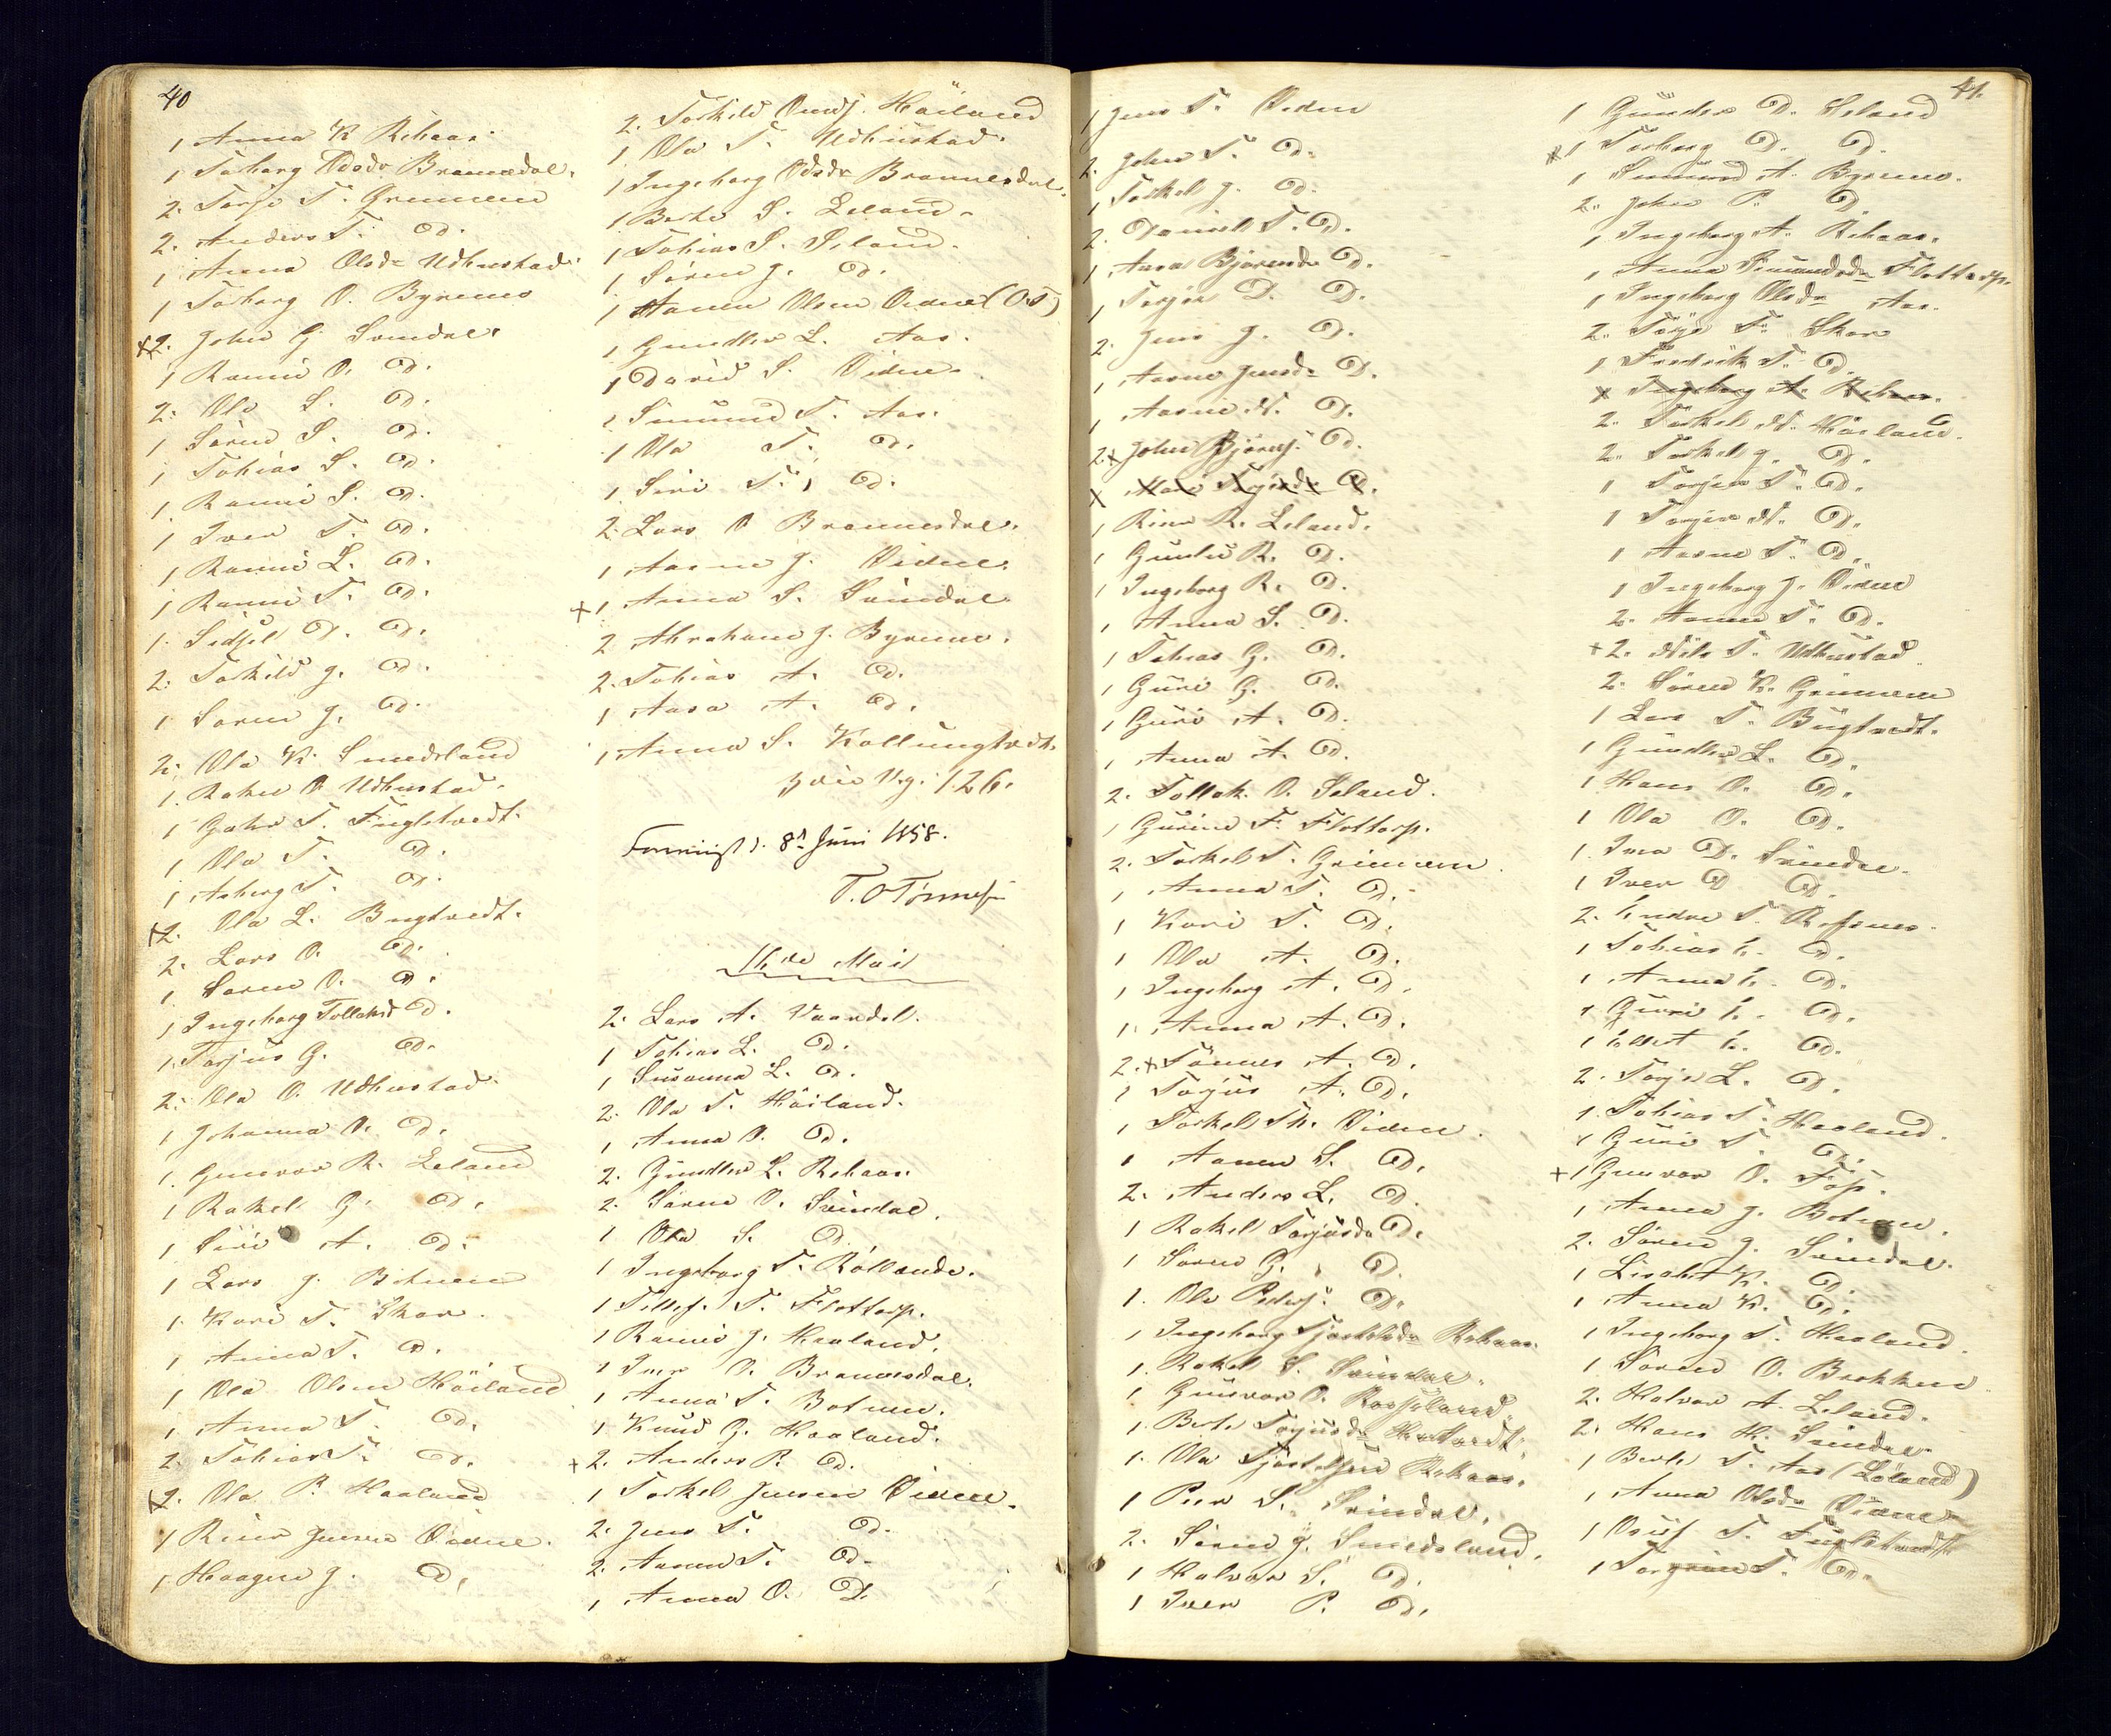 40
1 Anna K Rehaar.
1 Taborg Odsdr Brannedal.
2. Torje T. Grummen
2. Anders T. Do.
1 Anna Olsdr Udhustad.
1 Torborg O. Byremo
x2. John G Svindal.
1 Rannie O. Do.
2. Ole S. Do.
1 Søren S. Do.
1 Tobias S. Do.
1 Rannie S. Do.
1 Iver T. Do.
1 Rannie L. Do.
1 Rannie T. Do.
1. Sidsel O. Do.
2. Torkild J. Do.
1 Soren J. Do.
2. Ola K. Smedsland
1. Rakel O Udhustad.
1 T. Fugletvedt.
1 Ola T. Do.
1 Asberg T. Do.
x2. Ola L. Bugtvedt.
2. Lars O. Do.
1 Soren O. Do.
1 Ingeborg Tollaksd Do.
1. Torjus G. Do.
2. Ola O. Udhustad.
1 Johanna O. Do.
1. Gunvor R. Leland
1 Rakel G. Do.
1 Siri A. Do.
1 Lars J. Botnen
1. Kari T. Skar.
1 Anna T. Do.
1 Ola Olsen Höiland
1 Anna T. Do.
2. Tobias T. Do.
x2. Ola P. Haaland
1 Rier Jensen Vidne.
1 Haagen J. Do.
2. Torkild Höiland
1 Ola T. Udhustad.
1 Ingeborg Odsdr Brannesdal.
1 Berte S. Leland.
1 Tobias S. Seland.
1 Søren J. Do.
1 Aanen Olsen Vidne (O.T)
1 Gundler L. Aas.
1 David S. Vidne.
1 Simund T. Aas.
1 Ola T. Do.
1 Siri T. Do.
2. Lars O Brannesdal.
1 Aasne J. Vidne.
+1 Anna S. Svindal
2 Abraham J. Byremo.
2. Tobias A. Do.
1 Aasa A. Do.
1 Anna S. Kollungtvedt.
126.
d. 8de Juni 1858.
T. O Tønnes
16de Mai
2. Lars A. Vaardal.
1 Tobias L. Do.
1 Susanna L. Do.
2. Ola T. Höiland.
1 Anna O. Do.
2. Gundler L. Rehaar.
2. Søren O. Svindal.
1 Ola S. Do.
1 Ingeborg T. Röllande.
1 Tellef. T. Flottorp.
1 Rannie J. Haaland.
1 Iver O. Brannesdal.
1 Anna T. Botnen.
1 Knud G. Haaland.
+2. Anders P. Do.
1 Torkel Jensen Vidne.
2. Jens T. Do.
2. Aanen T. Do.
1 Anna O. Do.
41.
1 Jens T. Vidne
2. John T. Do.
1 Torkel J. Do.
2. Daniel T. Do.
1 Aasa Bjørnsdr Do.
1 Torjer D. Do.
2. Jens J. Do.
1 Aasne Jensdr Do.
1 Aasne N. Do.
2.x John Bjørns. Do.
x Do.
1 Rier R. Leland.
1 Gunlu R. Do.
1 Ingeborg R. Do.
1 Anna S. Do.
1 Tobias G. Do.
1 Guri G. Do.
1 Guri A. Do.
1 Anna A. Do.
2. Tollak O. Seland.
1 Gurine T. Flottorp.
2. Torkel T. Grimmen.
1 Anna T. Do.
1 Kari T. Do.
1 Ola A. Do.
1 Ingeborg A. Do.
1 Anna A. Do.
2.x Tönnes A. Do.
1 Torjus A. Do.
1 Torkel Th. Vidne.
1 Aanen S. Do.
2. Anders L. Do.
1 Rakel Torjusdr Do.
1 Soren G. Do.
1. Ola Peders. Do.
1 Ingeborg Tjøstelsdr Rehaar.
1. Rakel S. Svindal.
1 Gunvor O. Rosseland.
1. Berte Torjusdr
1. Ola Tjøstelsen Rehaar.
1 Peer S. Svindal.
2. Søren J. Smedsland.
1 Halvor S. Do.
1 Iver P. Do.
1 Gunder D. Seland
x1 Torborg D. Do.
1 Simund A. Byremo.
2. John P. Do.
1 Ingeborg A. Rehaar.
1 Anna Simundsdr Flottorp.
1 Ingeborg Olsdr Aas.
2. Törje T. Skar
1 Fredrik T. Do.
x Ingeborg A. Rehaar.
2. Torkel N. Höiland.
2. Torkel J. Do.
1 Torjer T. Do.
1 Torjer N. Do.
1 Aasne T. Do.
1 Ingeborg J. Vidne
2. Aanen T. Do.
+2. Nils T. Udhustad
2. Søren K. Grimmen
1 Lars T. Bugtvedt.
1 Gundler L. Do.
1 Hans O. Do.
1 Ola O. Do.
1. D. Svindal.
1 Iver D Do.
2. Endre T. Refsnes.
1 Tobias E. Do.
1 Anna E. Do.
1 Gunni E. Do.
1 Ellert E. Do.
2. Torje L. Do.
1. Tobias T. Haaland.
1 Guri T. Do.
+1 Gunvor O. Fos.
1 Anna J. Botnen.
2. Søren J. Svindal.
1 Lisabet K. Do.
1 Anna K. Do.
1 Ingeborg T. Haaland.
1 Soren O. Brokken
2. Halvor A. Leland.
2. Hans H. Svindal.
1 Berte T. Aas (Löland)
1 Anna Olsdr Vidne
1 Osuf T. Fugletvedt
1 Torgrim T. Do.